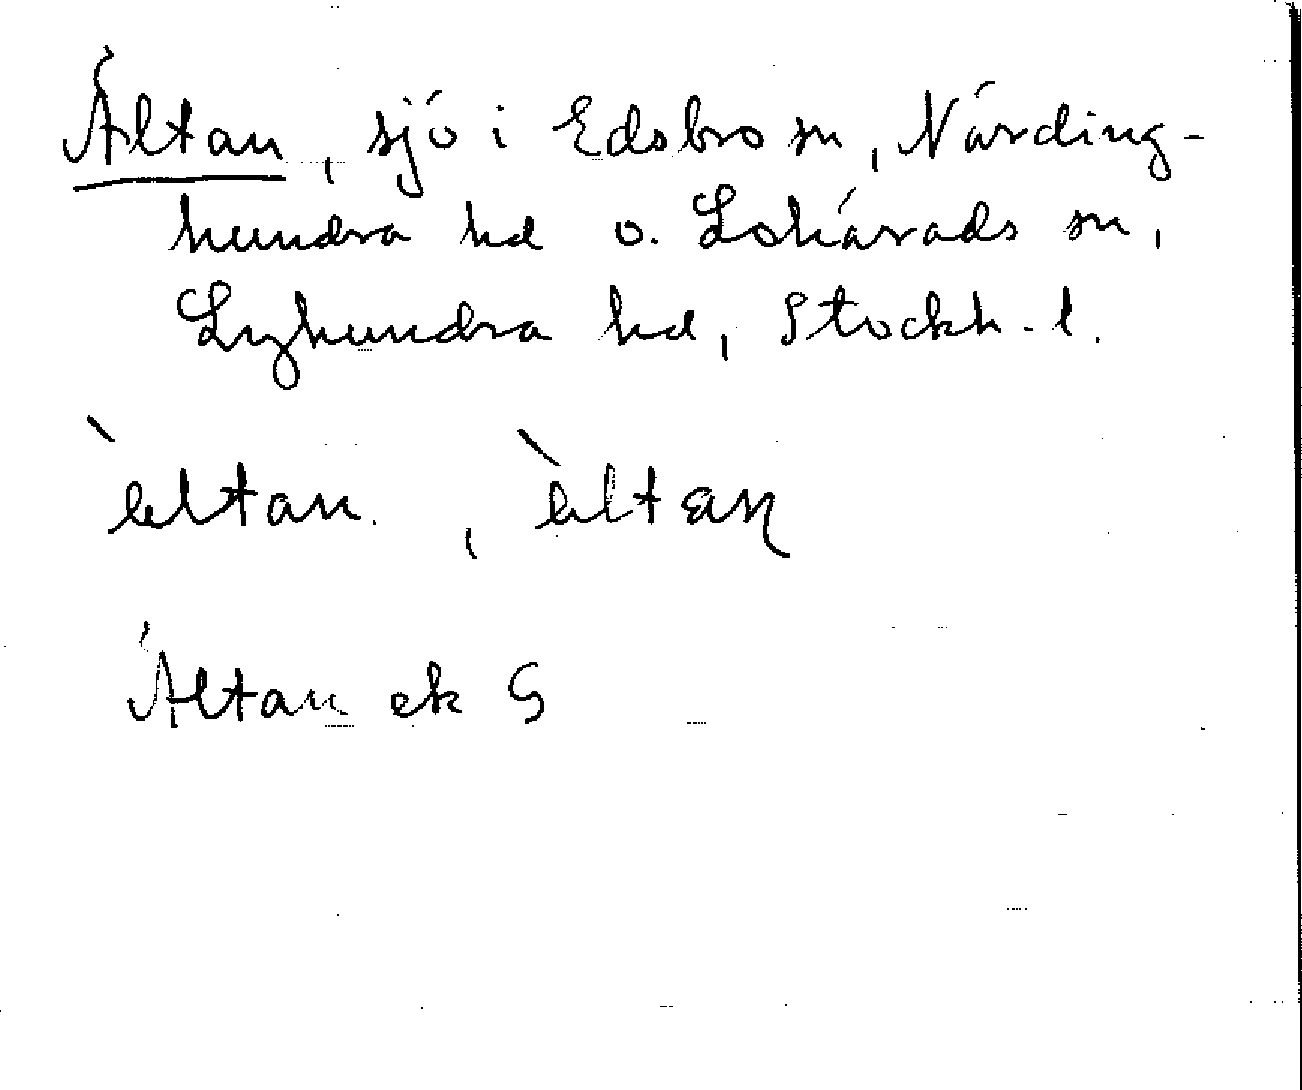 Ältan, sjö i Edsbro sn, Närding-
hundra hd o. Lohärads sn,
Lyhundra hd, Stockh. l.
`eltan , `ɛltaɳ
Ältan ek G